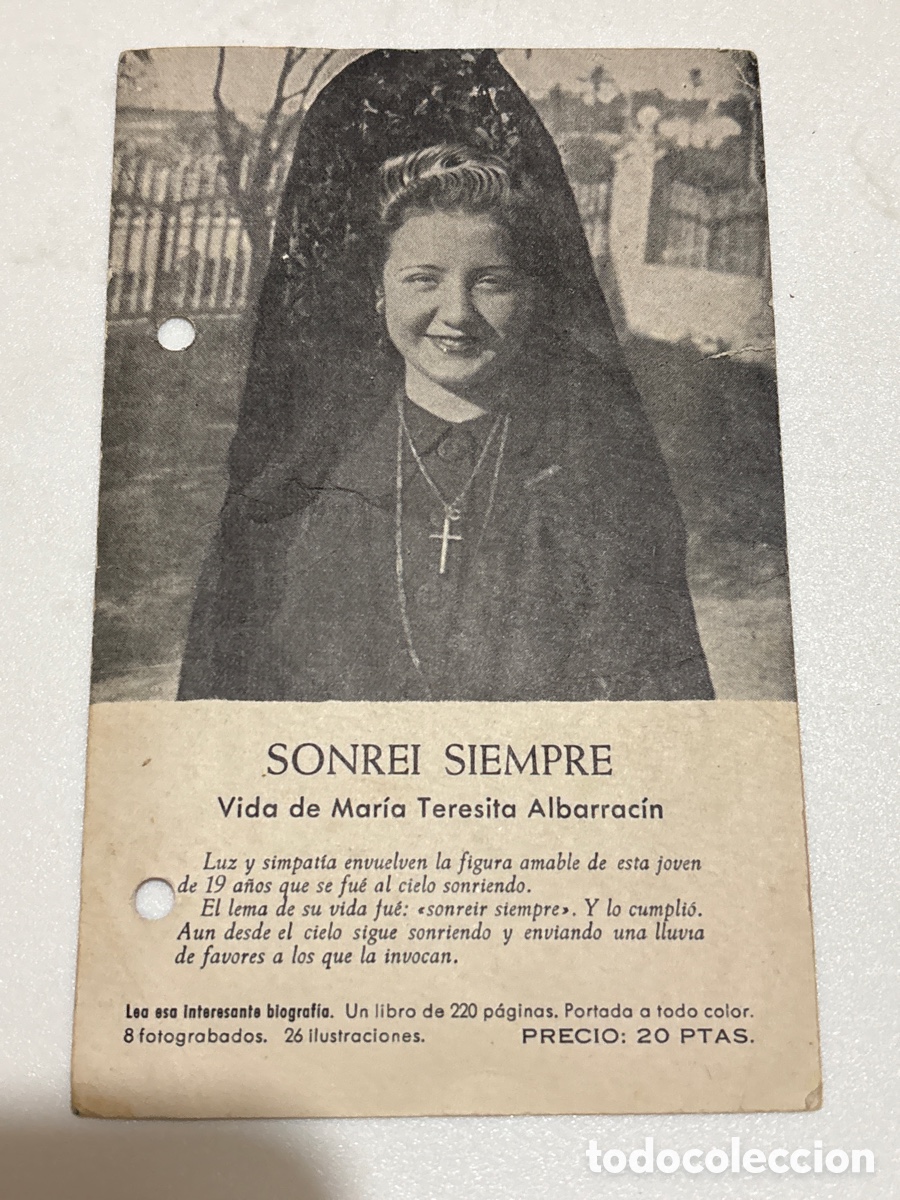 SONREI SIEMPRE
Vida de María Teresita Albarracín
Luz y simpatía envuelven la figura amable de esta joven
de 19 años que se fué al cielo sonriendo.
El lema de su vida fué: «sonreir siempre». Y lo cumplió.
Aun desde el cielo sigue sonriendo y enviando una lluvia
de favores a los que la invocan.
Lea esa interesante biografía. Un libro de 220 páginas. Portada a todo color.
8 fotograbados. 26 ilustraciones. PRECIO: 20 PTAS.
todocoleccion